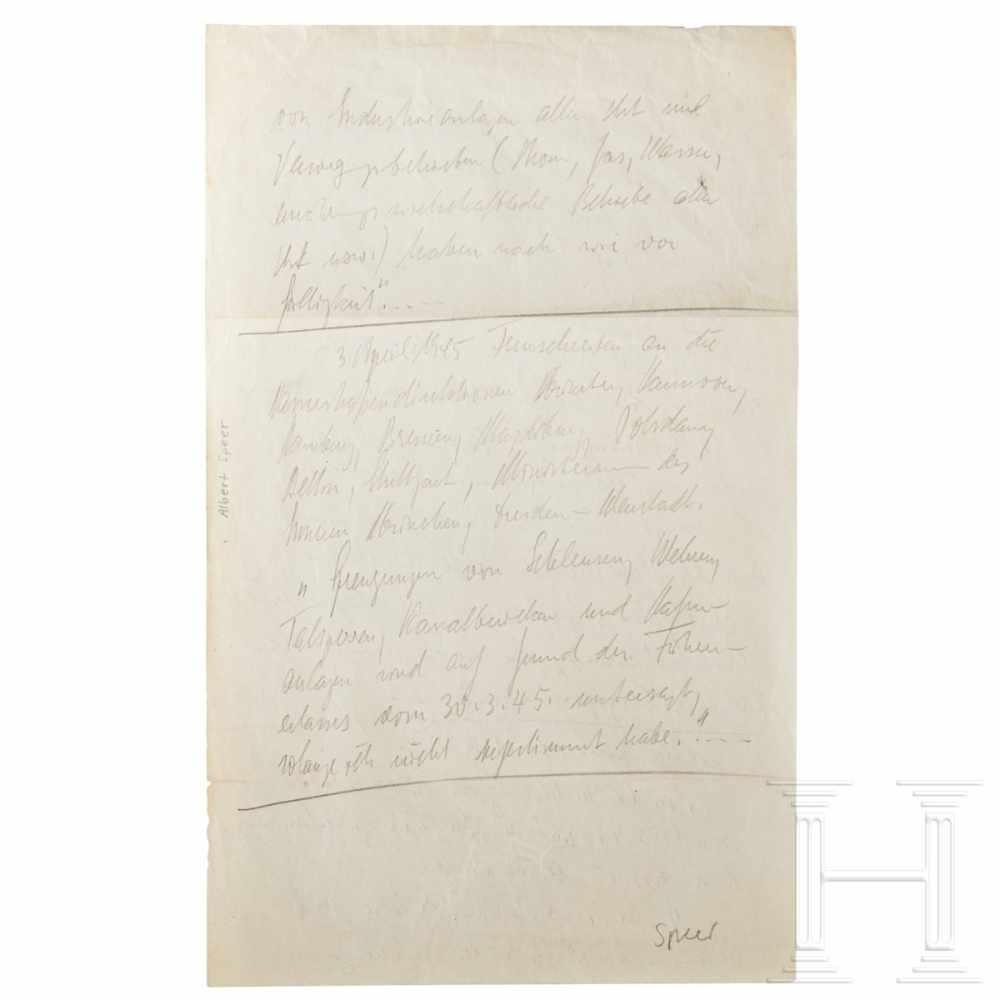 von Industrieanlagen aller Art und
Versorgungsbetrieben (Strom, Gas, Wasser,
wirtschaftliche Betriebe aller
Art usw.) haben nach wie vor
Gültigkeit". . —
3. April 1945 Fernschreiben an die
Wasserstraßendirektionen Münster, Hannover,
Hamburg, Bremen, Magdeburg, Potsdam,
Stuttgart, Ministerium des
Innern München, Dresden –
„ Sprengungen von Schleusen, Wehren,
Talsperren, Kanalbrücken und Hafen-
anlagen sind auf Grund des Führer-
erlasses vom 30.3.45. untersagt,
solange ich nicht zugestimmt habe." . . —
Speer
Albert Speer
H